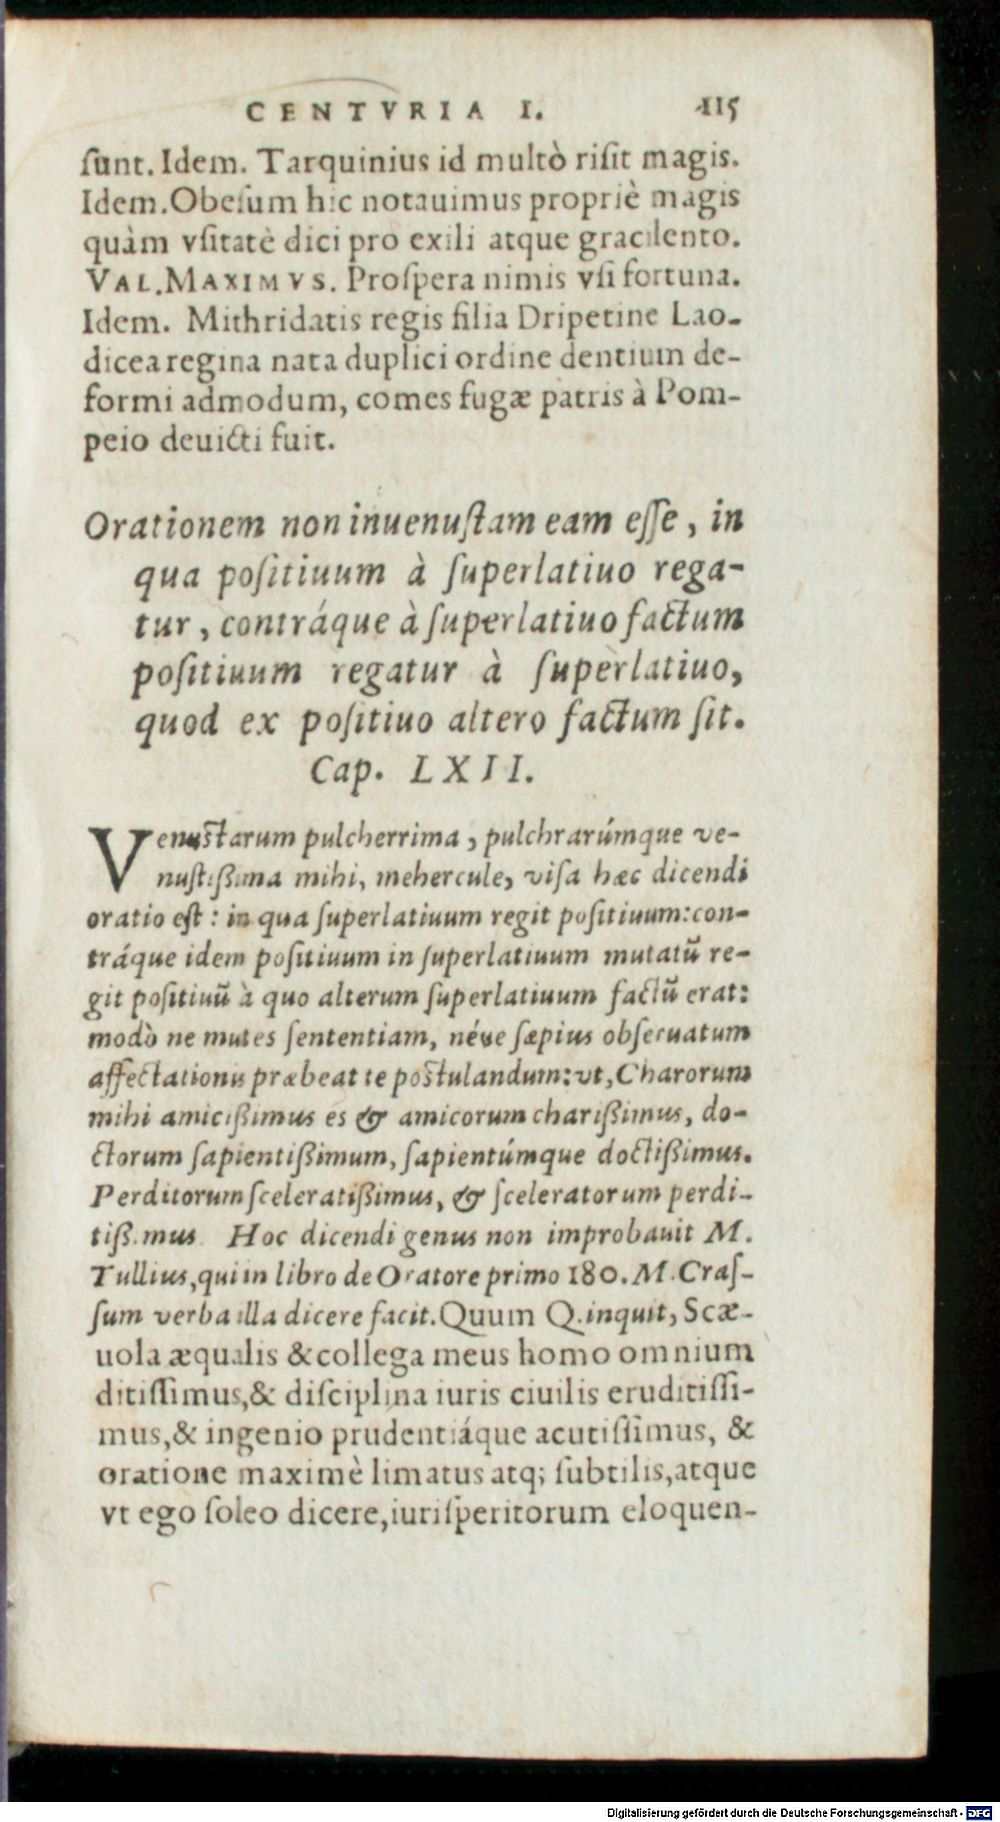 CENTVRIA I. 115
ſunt. Idem. Tarquinius id multò riſit magis.
Idem. Obeſum hic notauimus propriè magis
quàm vſitatè dici pro exili atque gracilento.
VAL. MAXIMVS. Proſpera nimis vſi fortuna.
Idem. Mithridatis regis filia Dripetine Lao-
dicea regina nata duplici ordine dentium de-
formi admodum, comes fugæ patris à Pom-
peio deuicti fuit.
Orationem non inuenuſtam eam eſſe, in
qua poſitiuum à ſuperlatiuo rega-
tur, contráque à ſuperlatiuo factum
poſitiuum regatur à ſuperlatiuo,
quod ex poſitiuo altero factum ſit.
Cap. LXII.
Venuſtarum pulcherrima, pulchrarúmque ve-
nuſtißima mihi, mehercule, viſa hæc dicendi
oratio eſt: in qua ſuperlatiuum regit poſitiuum: con-
tráque idem poſitiuum in ſuperlatiuum mutatũ re-
git poſitiuũ à quo alterum ſuperlatiuum factũ erat:
modò ne mutes ſententiam, néue ſæpius obſeruatum
affectationis præbeat te poſtulandum: vt, Charorum
mihi amicißimus es & amicorum charißimus, do-
ctorum ſapientißimum, ſapientúmque doctißimus.
Perditorum ſceleratißimus, & ſceleratorum perdi-
tißimus. Hoc dicendi genus non improbauit M.
Tullius, qui in libro de Oratore primo 180. M. Craſ-
ſum verba illa dicere facit. Quum Q. inquit, Scæ-
uola æqualis & collega meus homo omnium
ditiſſimus, & diſciplina iuris ciuilis eruditiſſi-
mus, & ingenio prudentiáque acutiſſimus, &
oratione maximè limatus atq; ſubtilis, atque
vt ego ſoleo dicere, iuriſperitorum eloquen-
Digitalisierung gefördert durch die Deutsche Forschungsgemeinschaft - DFG